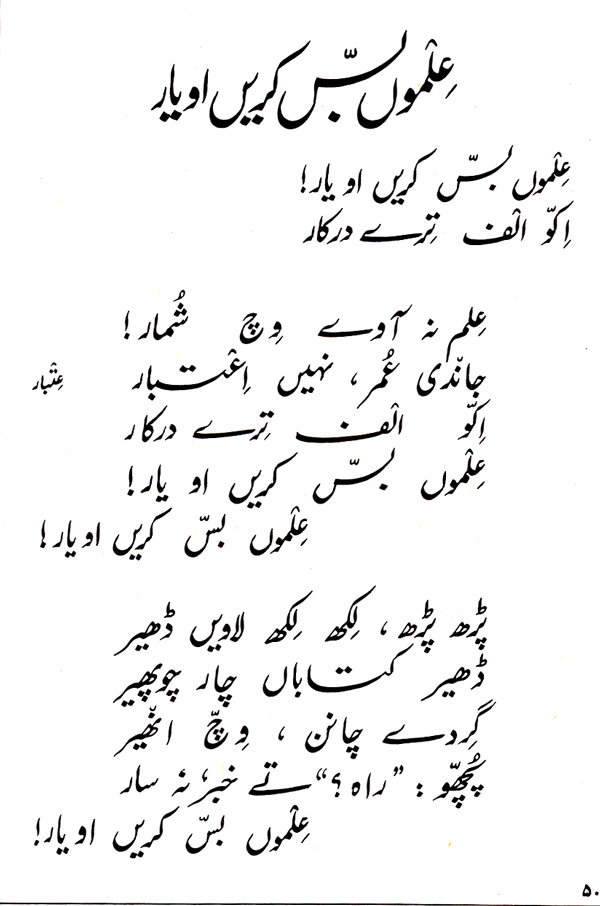 عِلْموں بسّ کریں او یار
عِلْموں بسّ کریں او یار!
اِکّو الْف تِرے درکار
عِلم نہ آوے وِچ شُمار!
جانْدی عُمر، نہیں اِعْتبار
عِتْبار
اِکّو الْف تِرے درکار
عِلْموں بسّ کریں او یار!
عِلْموں بسّ کریں او یار!
پڑھ پڑھ، لِکھ لِکھ لاویں ڈھیر
ڈھیر کتاباں چار چوپھیر
گِردے چانن، وِچّ انْھیر
پُچھّو: ”راہ؟“ تے خبر، نہ سار
عِلْموں بسّ کریں او یار!
۵۰